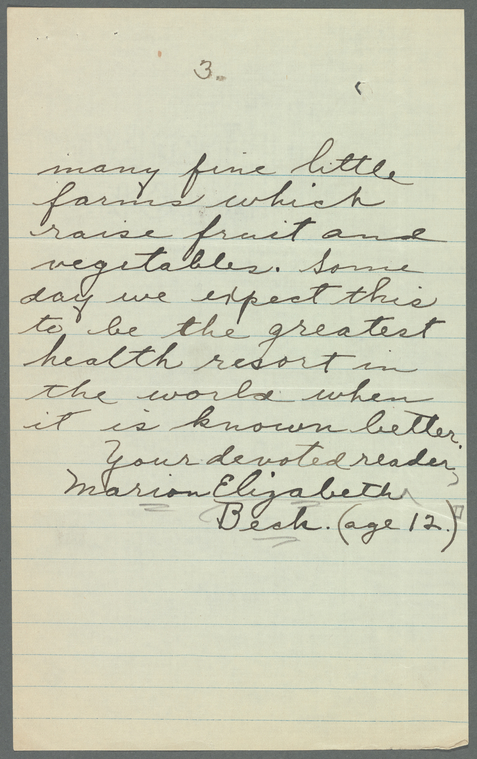 3.
many fine little
farms which
raise fruit and
vegetables. Some
day we expect this
to be the greatest
health resort in
the world when
it is known better.
Your devoted reader,
Marion Elizabeth
Beck. (age 12.)